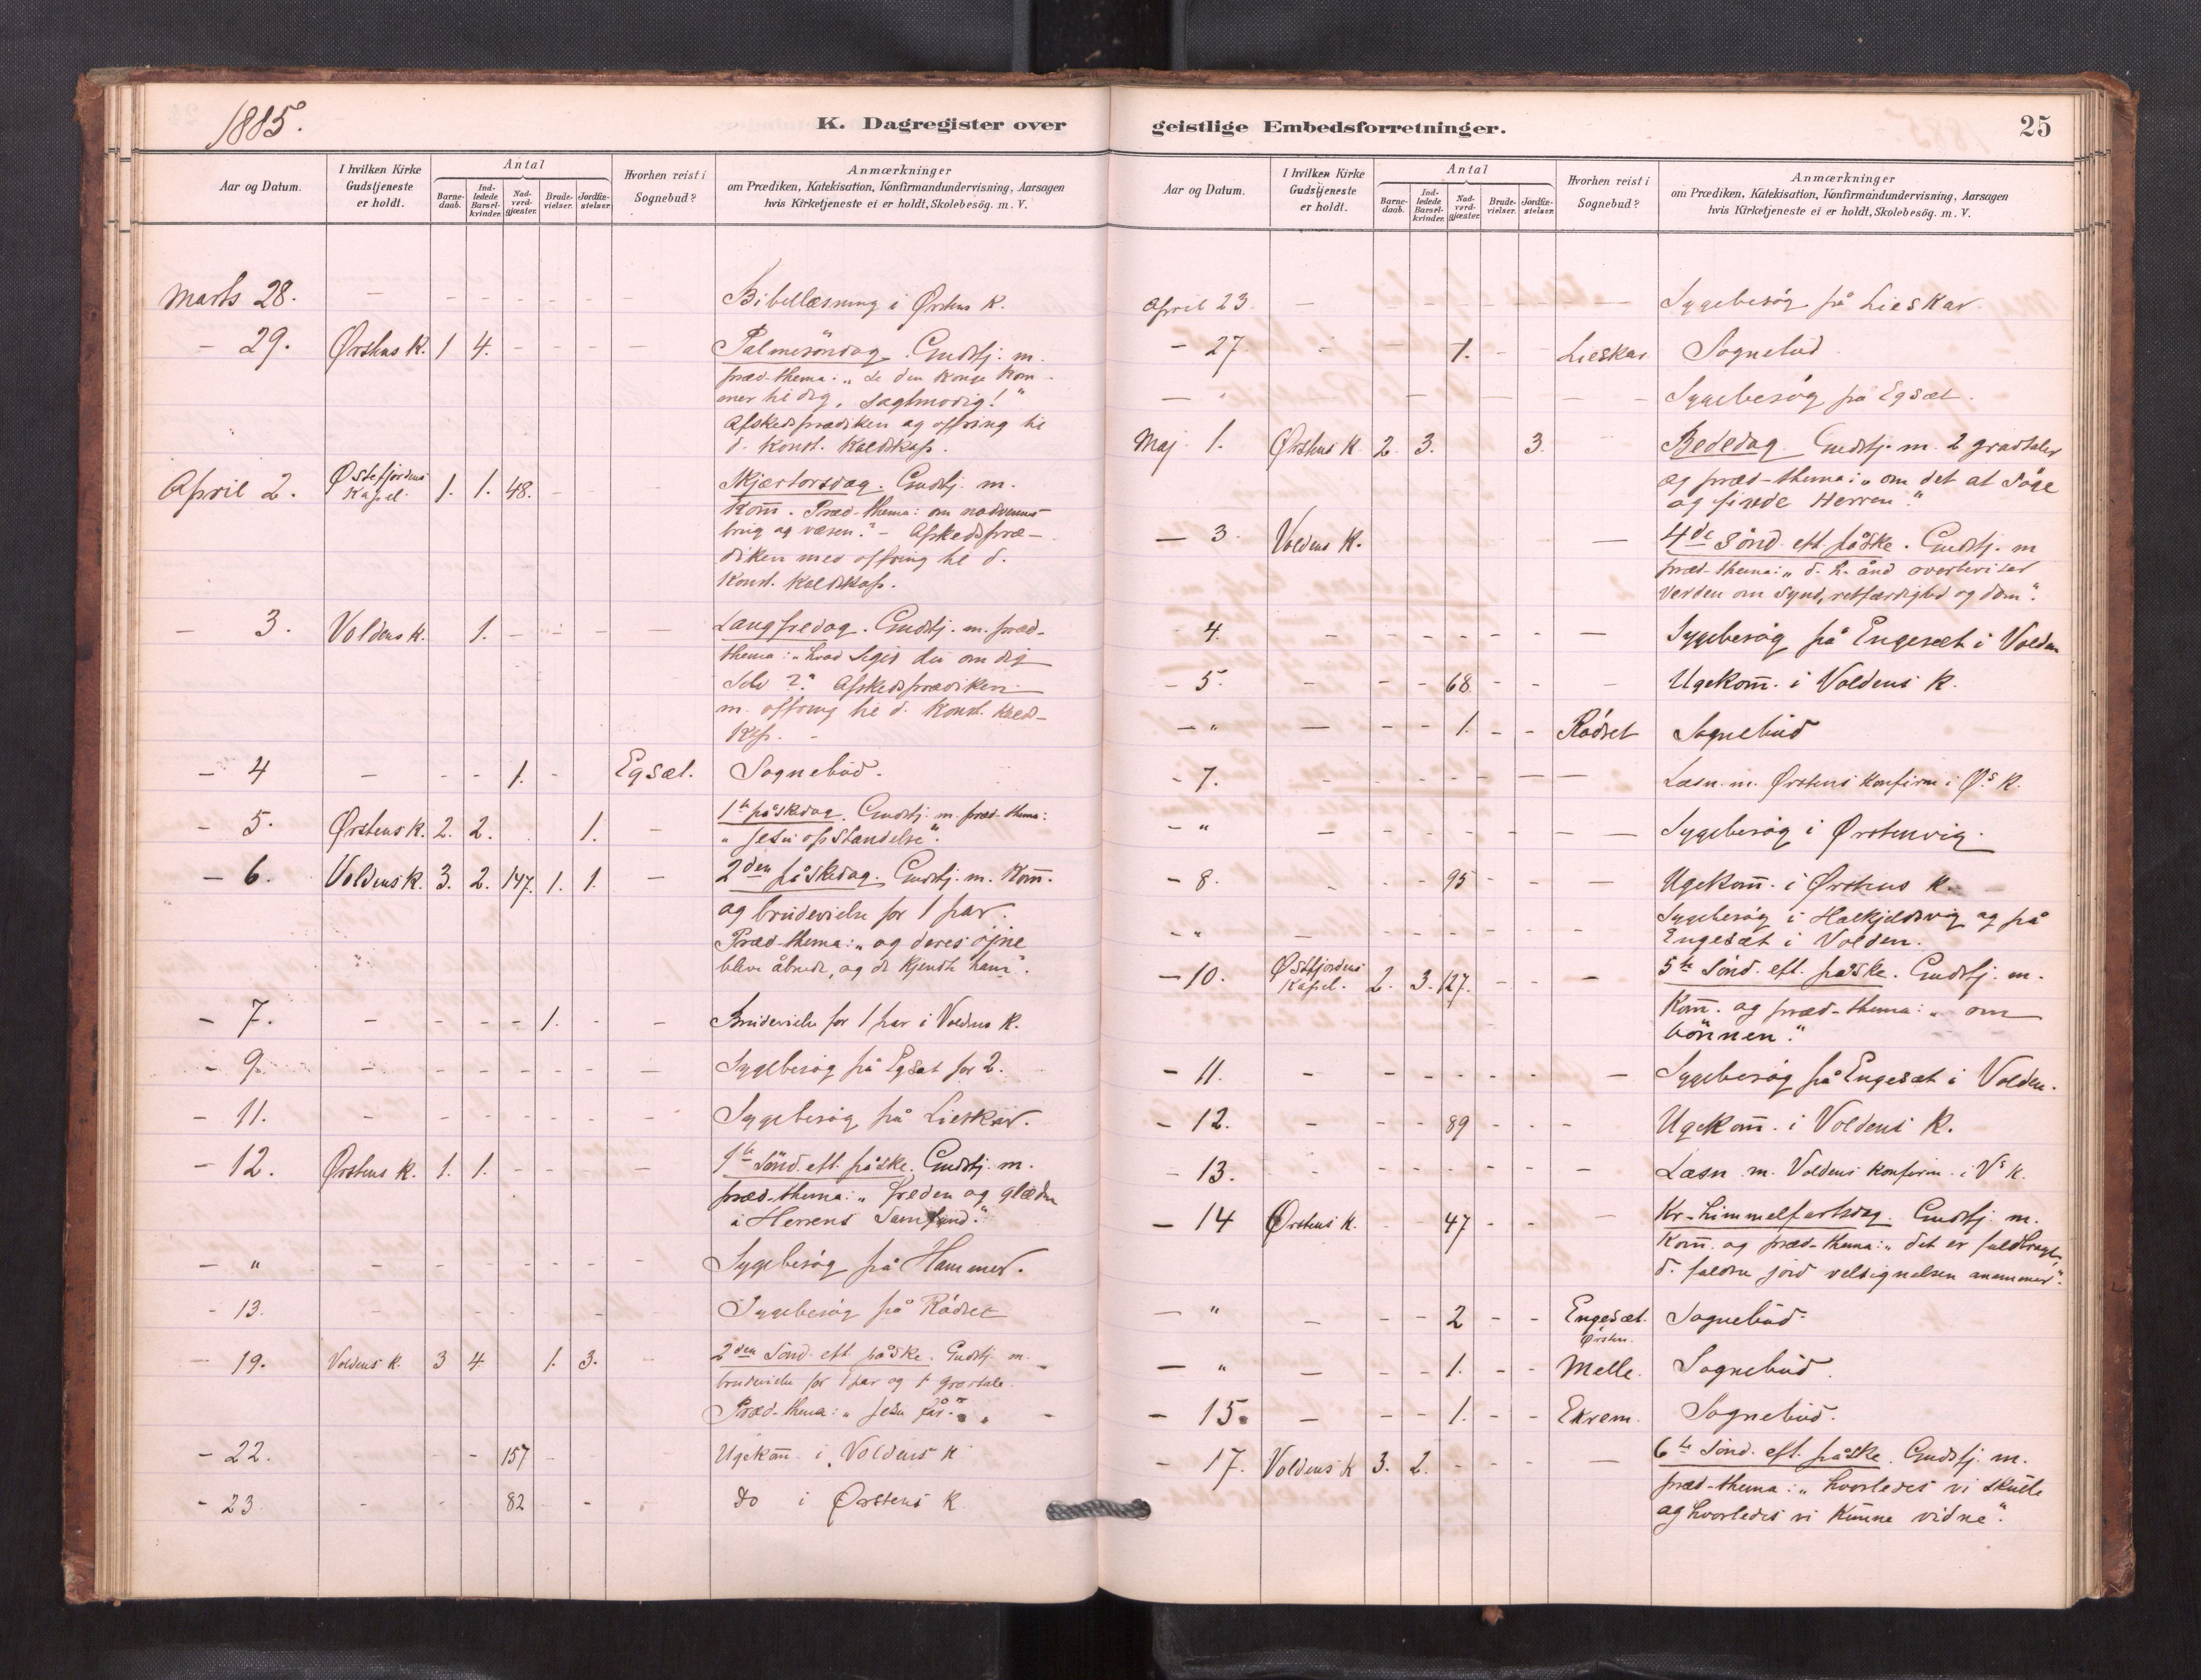 1885.
K. Dagregister over
Aar og Datum.
I hvilken Kirke Gudstjeneste er holdt.
Antal
Barnedaab.
Indledede Barselkvinder.
Nadverdgjæster.
Brudevielser.
Jordfæstelser.
Hvorhen reist i Sognebud?
Anmærkninger
om Prædiken, Katekisation, Konfirmandundervisning, Aarsagen
hvis Kirketjeneste ei er holdt, Skolebesög. m. V.
Marts 28. - - - - - - - Bibellæsning i Ørstens K.
- 29. Ørstens K. 1 4. - - - - Palmesöndag. Gudstj. m.
præd-thema: „Se din Konge kom-
mer til dig, sagtmodig!"
Afskedsprædiken og offring til
d. Konst. Kaldskap.
April 2. Østefjordens Kapel. 1. 1. 48. - - - Skjærtorsdag. Gudstj. m.
Kom̅. Præd-thema: om nadverens
brug og væsen." - Afskedspræ-
diken med offring til d.
Konst. Kaldskap.
- 3. Voldens K. 1. - - - - Langfredag. Gudstj. m. præd-
thema: „hvad siges du om dig
Selv?" Afskedsprædiken
m. offring til d. Konst. Kald-
Kap. -
- 4 - - - 1. - Egsæt. Sognebud.
- 5. Ørstens K. 2. 2. 1. - 1te påskedag. Gudstj. m. præd-thema:
„Jesu opstandelse".
- 6. Voldens K. 3. 2. 147. 1. 1. - 2den påskedag. Gudstj. m. Kom̅.
og brudevielse for 1 par.
Præd-thema: „og deres öjne
bleve åbnede, og de kjendte ham".
- 7. - - - - 1. - - Brudevielse for 1 par i Voldens K.
- 9. - - - - - - - Sygebesög på Egsæt for 2.
- 11. - - - - - - - Sygebesög på Lieskar.
- 12. Ørstens K. 1. 1. - - - - 1te Sönd. eft. påske. Gudstj. m.
præd-thema: „Freden og glæden
i Herrens Samfund."
- " - - - - - - - Sygebesög på Hammer.
- 13. - - - - - - - Sygebesög på Rödset
- 19. Voldens K. 3 4 1. 3. - 2den Sönd. eft. påske. Gudstj. m.
brudevielse for 1 par og 1 gravtale.
Præd-thema: „Jesu får."
- 22. - 157 - Ugekom̅. i Voldens K
- 23 - - 82 - do i Ørstens K.
geistlige Embedsforretninger.
25
Aar og Datum.
I hvilken Kirke Gudstjeneste er holdt.
Antal
Barnedaab.
Indledede Barselkvinder.
Nadverdgjæster.
Brudevielser.
Jordfæstelser.
Hvorhen reist i Sognebud?
Anmærkninger
om Prædiken, Katekisation, Konfirmandundervisning, Aarsagen
hvis Kirketjeneste ei er holdt, Skolebesög. m. V.
April 23. - - - - - - - Sygebesög på Lieskar.
- 27. - 1. - - Lieskar Sognebud
- " - - - - Sygebesög på Egsæt.
Maj 1. Ørstens K. 2. 3. 3. - Bededag. Gudstj. m. 2 gravtaler
og præd-thema: „om det at söge
og finde Herren."
- 3. Voldens K. - 4de Sönd. eft. påske. Gudstj. m
præd-thema: „d. h. ånd overbeviser
Verden om Synd, retfærdighed og dom".
- 4. - - - - - - - Sygebesög på Engesæt i Volden
- 5. - - - 68 - - - Ugekom̅. i Voldens K.
- " - - - 1. - - Rödset Sognebud
- 7. - - - - - - - Læsn. m. Ørstens Konfirm i Øs K.
- " - - - - - - - Sygebesög i Ørstenvig.
- 8. - - - 95 - - - Ugekom̅. i Ørstens K.
- " - - - - - - - Sygebesög i Halkjeldsvig og på
Engesæt i Volden.
- 10. Østfjordens Kapel. 2. 3. 127. - - - 5te Sönd. eft. påske. Gudstj. m.
Kom̅. og præd-thema: „om
bönnen."
- 11. - - - - - - - Sygebesög på Engesæt i Volden.
- 12. - - - 89 - - - Ugekom̅. i Voldens K.
- 13. - - - - - - - Læsn. m. Voldens Konfirm. i Vs K.
- 14 Ørstens K. - - 47 - - - Kr-Himmelfartsdag. Gudstj. m.
Kom̅. og præd-thema: „det er fuldbragt,
d. faldne jord velsignelsen anammer".
- " - - - 2 - - Engesæt. Ørsten. Sognebud-
- " - - - 1. - - Melle. Sognebud.
- 15. - - - 1. - - Ekrem. Sognebud.
- 17. Voldens K 3. 2. - - - - 6te Sönd. eft. påske. Gudstj. m.
præd-thema: „hvorledes vi skulle
og hvorledes vi kunne vidne".